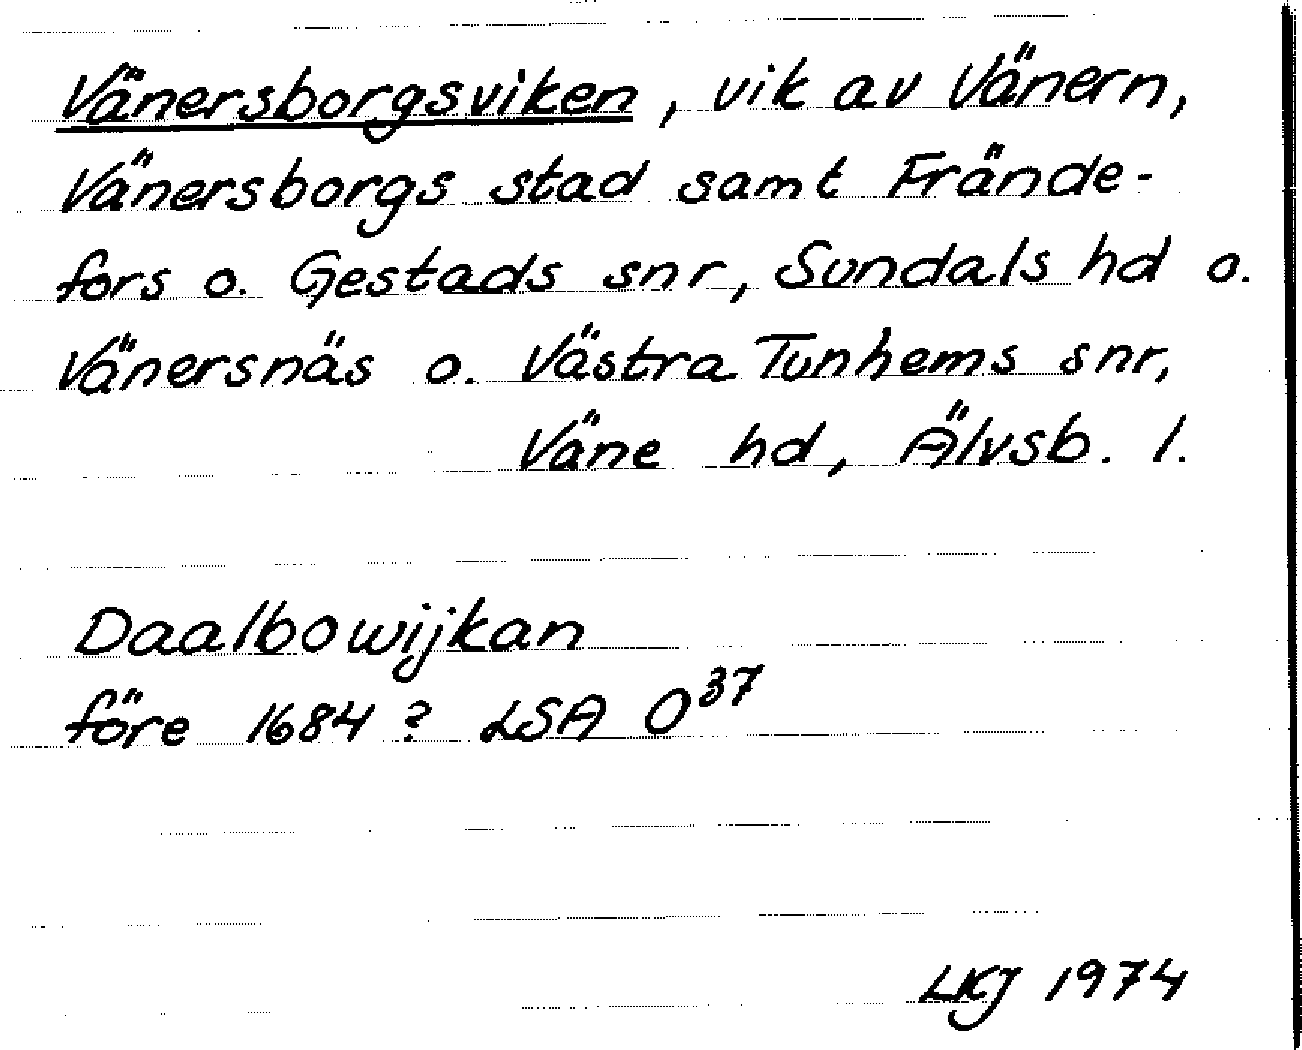 Vänersborgsviken, vik av Vänern,
Vänersborgs stad samt Frände-
fors o. Gestads snr, Sundals hd o.
Vänersnäs o. Västra Tunhems snr,
Väne hd, Älvsb. l.
Daalbowijkan
före 1684? LSA O³⁷
LKJ 1974